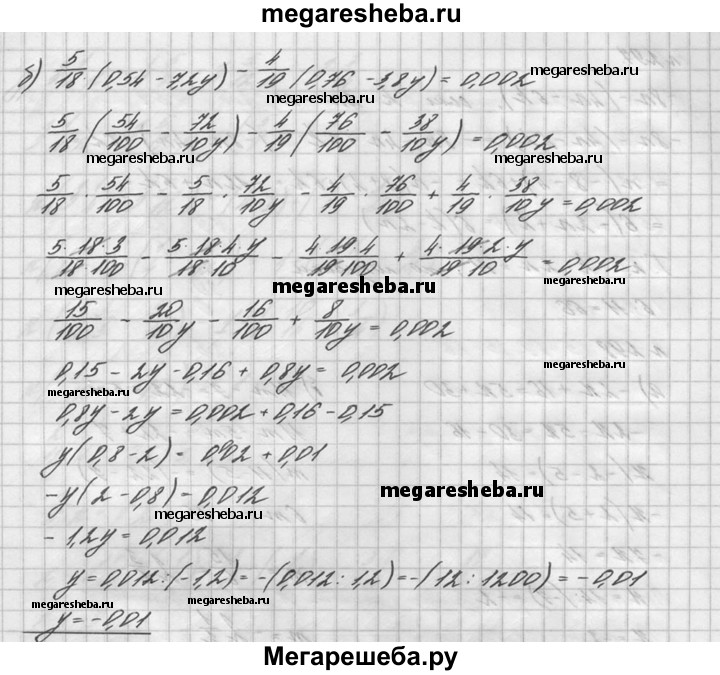 megaresheba.ru
б) 5/18 (0,54 - 7,2y) - 4/19 (0,76 - 3,8y) = 0,002
megaresheba.ru megaresheba.ru
5/18 (54/100 - 72/10 y) - 4/19 (76/100 - 38/10 y) = 0,002
megaresheba.ru megaresheba.ru
5/18 · 54/100 - 5/18 · 72/10 y - 4/19 · 76/100 + 4/19 · 38/10 y = 0,002
5·18·3/18·100 - 5·18·4·y/18·10 - 4·19·4/19·100 + 4·19·2·y/19·10 = 0,002
megaresheba.ru megaresheba.ru megaresheba.ru
15/100 - 20/10 y - 16/100 + 8/10 y = 0,002
0,15 - 2y - 0,16 + 0,8y = 0,002
megaresheba.ru megaresheba.ru
0,8y - 2y = 0,002 + 0,16 - 0,15
y(0,8 - 2) = 0,002 + 0,01
-y(2 - 0,8) = 0,012
megaresheba.ru megaresheba.ru
- 1,2y = 0,012
y = 0,012 : (-1,2) = -(0,012 : 1,2) = -(12 : 1200) = -0,01
megaresheba.ru megaresheba.ru megaresheba.ru
y = -0,01
Мегарешеба.ру